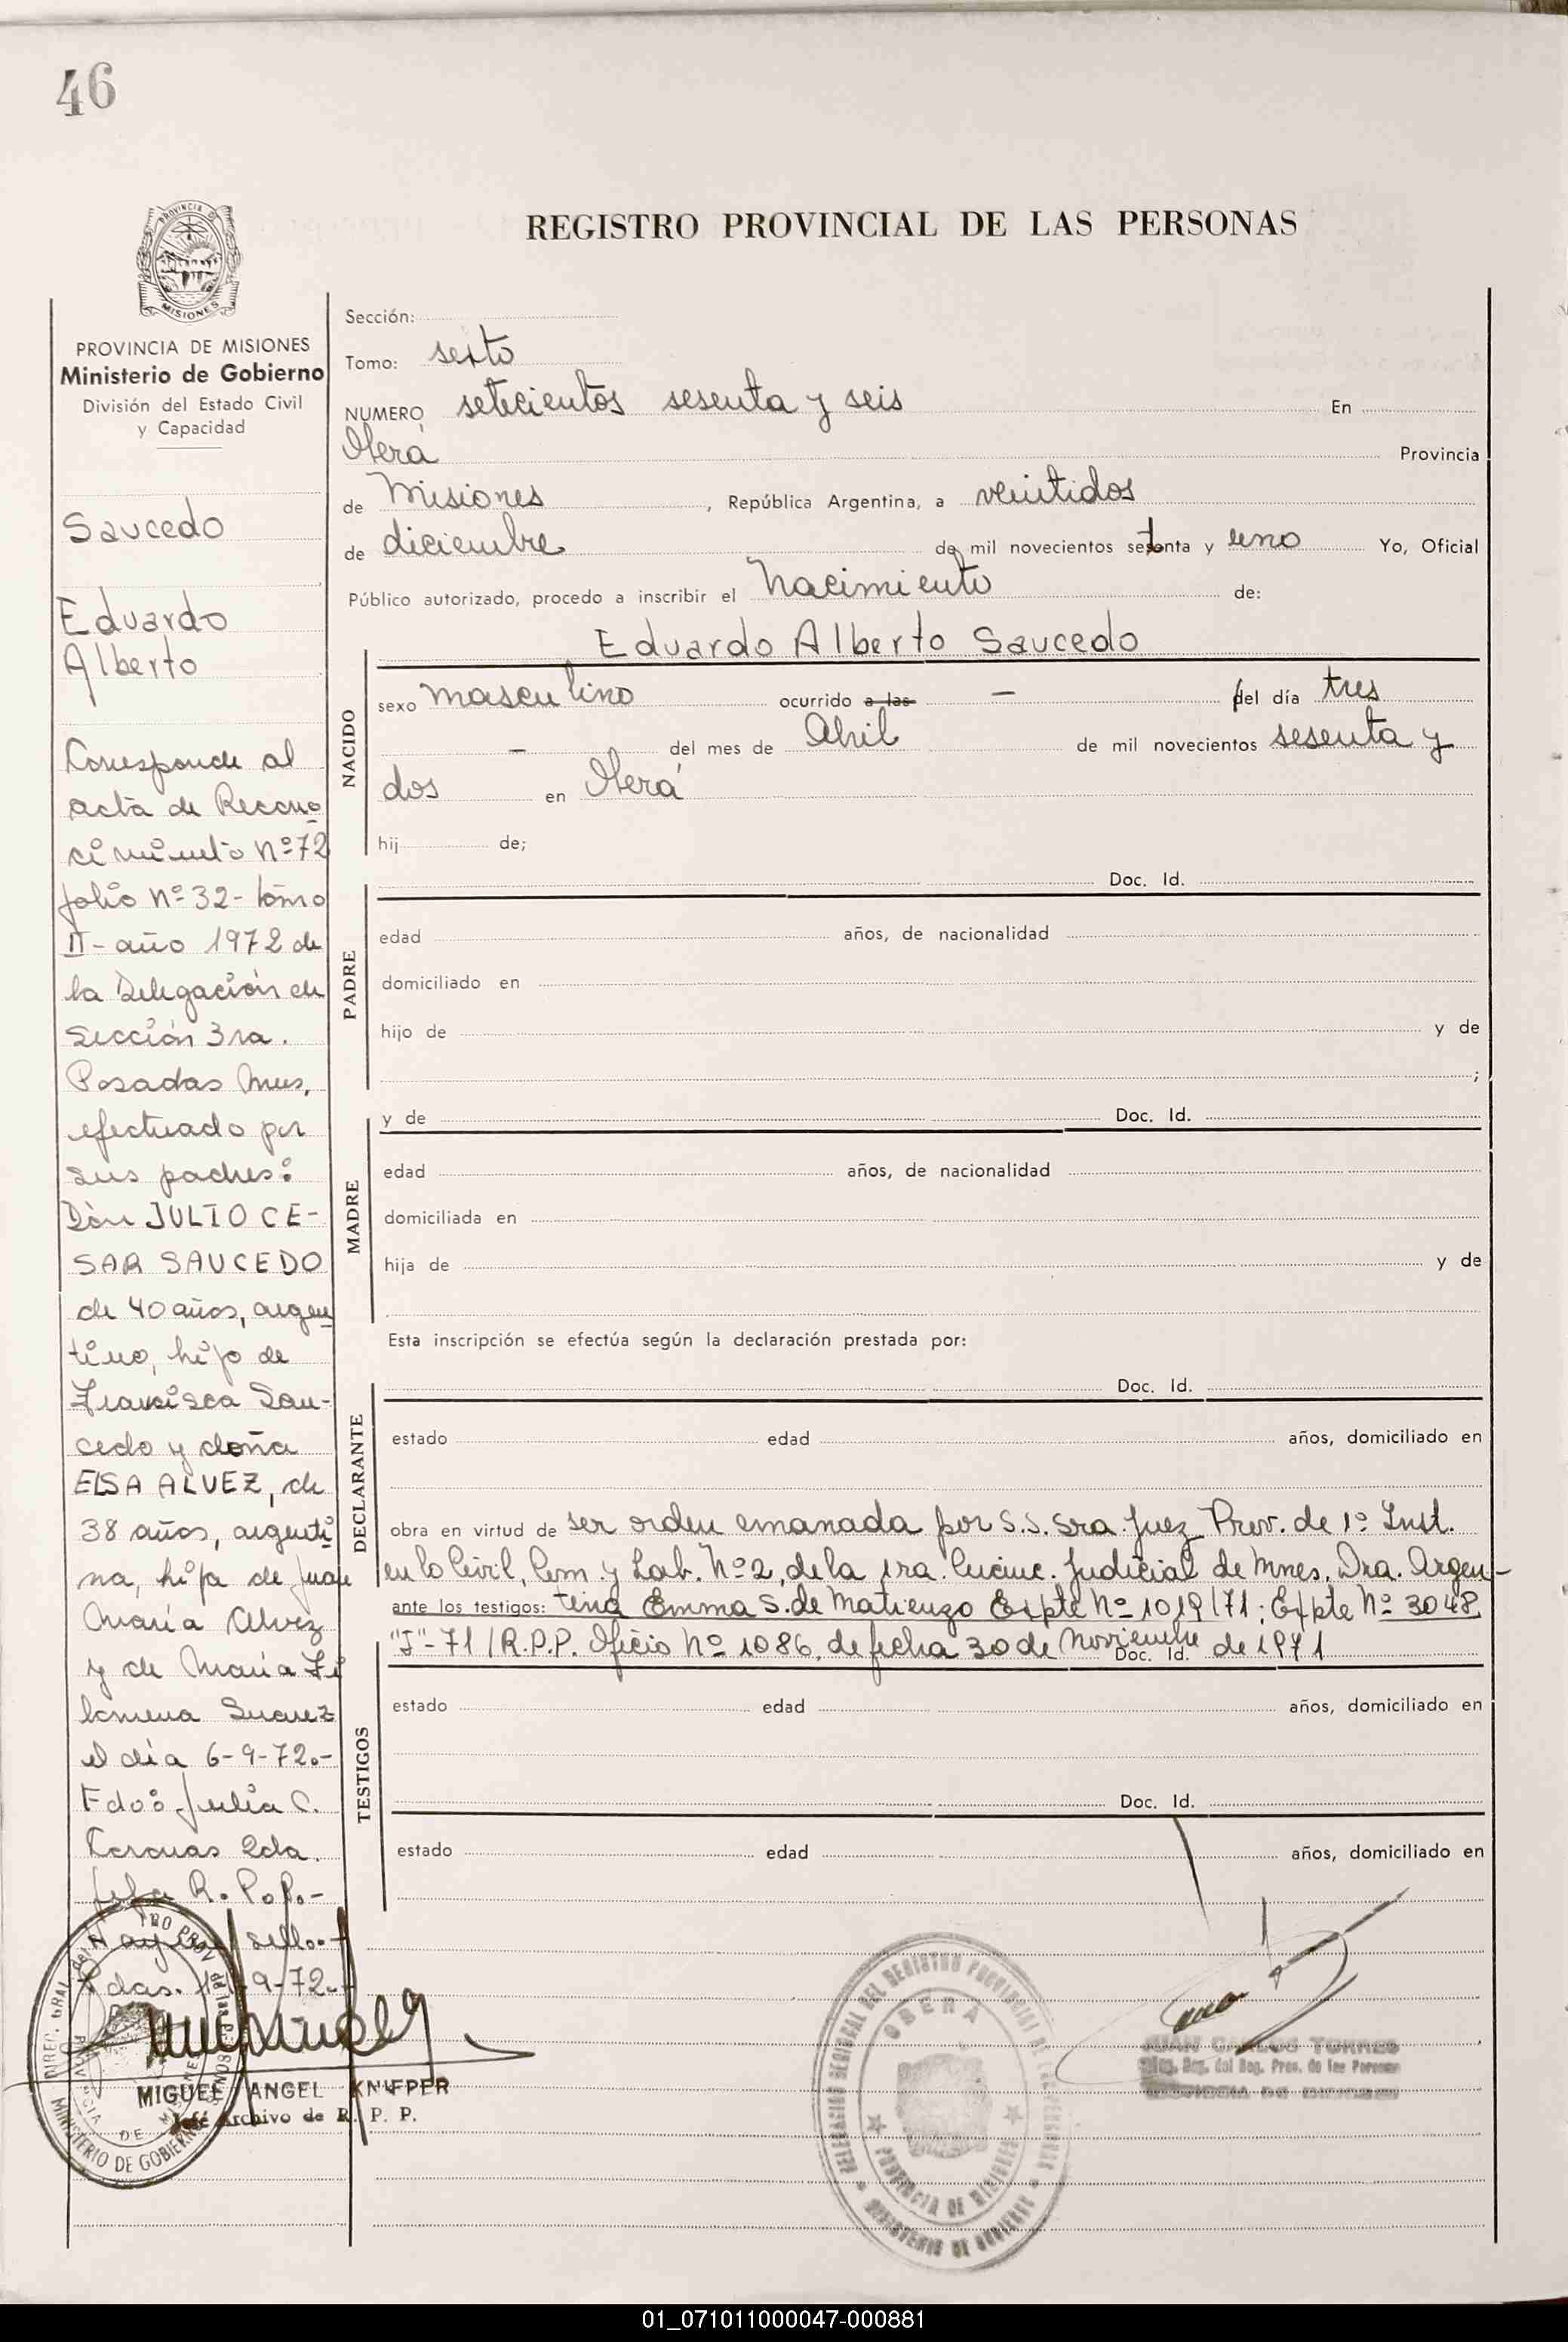 46
PROVINCIA DE
MISIONES
REGISTRO PROVINCIAL DE LAS PERSONAS
PROVINCIA DE MISIONES
Ministerio de Gobierno
División del Estado Civil
y Capacidad
Saucedo
Eduardo
Alberto
Corresponde al
acta de Recono
cimiento Nº 72
folio Nº 32 - tomo
II - año 1972 de
la Delegación de
Sección 3ra.
Posadas Mnes,
efectuado por
sus padres:
Don JULIO CE-
SAR SAUCEDO
de 40 años, argen
tino, hijo de
Francisca Sau-
cedo y doña
ELSA ALVEZ, de
38 años, argenti
na, hija de Juan
María Alvez
y de María Fi
lomena Suarez
el día 6-9-72.-
Fdo: Julia C.
2da.
Jefa R.P.P.-
Hay un sello.-
Pdas. 9-72.-
MIGUEL ANGEL KNIEPER
Jefe Archivo de R. P. P.
MINISTERIO DE GOBIERNO
Sección:
Tomo: sexto
NUMERO setecientos sesenta y seis En
Oberá Provincia
de Misiones, República Argentina, a veintidos
de diciembre de mil novecientos setenta y uno Yo, Oficial
Público autorizado, procedo a inscribir el Nacimiento de:
Eduardo Alberto Saucedo
NACIDO
sexo masculino ocurrido a las — del día tres
— del mes de Abril de mil novecientos sesenta y
dos en Oberá
hij de;
Doc. Id.
PADRE
edad años, de nacionalidad
domiciliado en
hijo de y de
;
y de Doc. Id.
MADRE
edad años, de nacionalidad
domiciliada en
hija de y de
Esta inscripción se efectúa según la declaración prestada por:
Doc. Id.
DECLARANTE
estado edad años, domiciliado en
obra en virtud de ser orden emanada por S.S. Sra. Juez Prov. de 1º Inst.
en lo Civil, Com. y Lab. Nº 2, de la 1ra. Circunc. Judicial de Mnes. Dra. Argen-
ante los testigos: tina Emma S. de Matienzo Expte Nº 1019/71; Expte Nº 3048
"J"-71/R.P.P. Oficio Nº 1086, de fecha 30 de Noviembre de 1971
Doc. Id.
TESTIGOS
estado edad años, domiciliado en
Doc. Id.
estado edad años, domiciliado en
DELEGACION REGIONAL DEL REGISTRO PROVINCIAL DE LAS PERSONAS
OBERA
PROVINCIA DE MISIONES
MINISTERIO DE GOBIERNO
JUAN CARLOS TORRES
Reg. del Reg. Prov. de las Personas
01_071011000047-000881